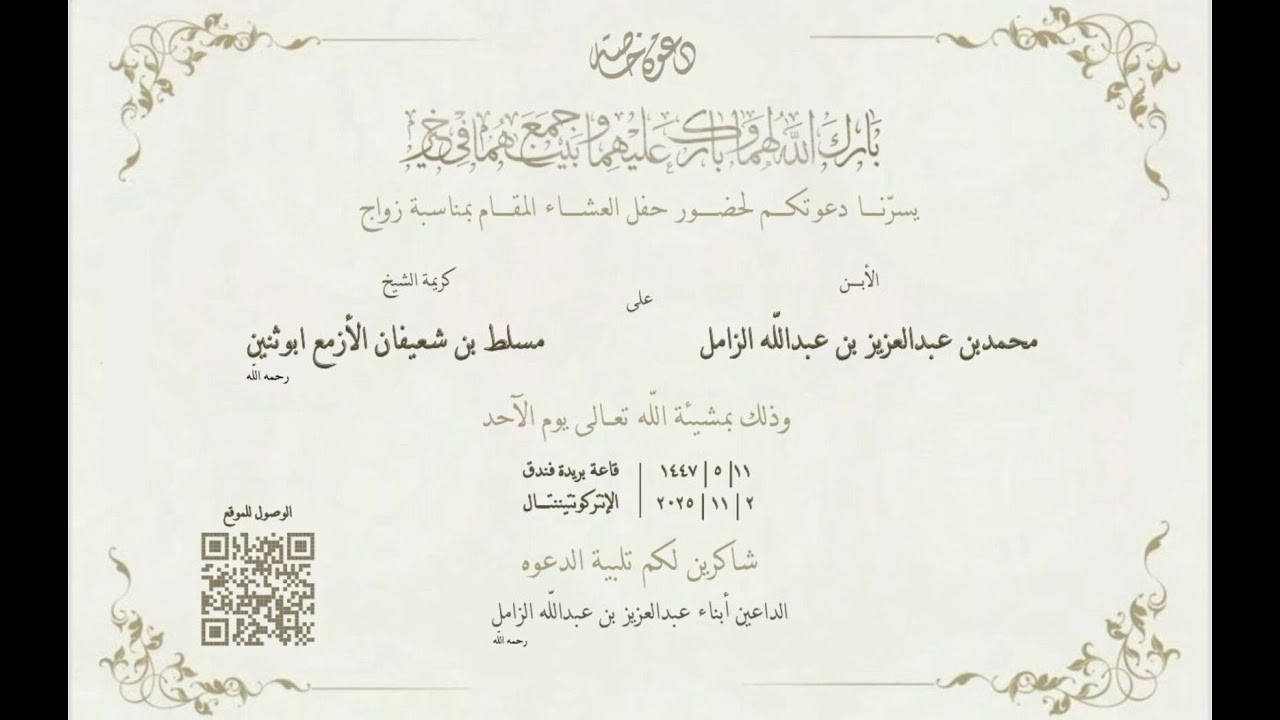 دعوة خاصة
بَارَكَ اللَّهُ لَهُمَا وَبَارَكَ عَلَيْهِمَا وَجَمَعَ بَيْنَهُمَا فِي خَيْرٍ
يسرّنا دعوتكم لحضور حفل العشاء المقام بمناسبة زواج
الأبن
محمدبن عبدالعزيز بن عبداللّه الزامل
على
كريمة الشيخ
مسلط بن شعيفان الأزمع ابوثنين
رحمه اللّه
وذلك بمشيئة اللّه تعالى يوم الآحد
١١| ٥ | ١٤٤٧
٢ | ١١ | ٢٠٢٥
قاعة بريدة فندق
الإنتركونتيننتال
شاكرين لكم تلبية الدعوه
الداعين أبناء عبدالعزيز بن عبداللّه الزامل
رحمه اللّه
الوصول للموقع